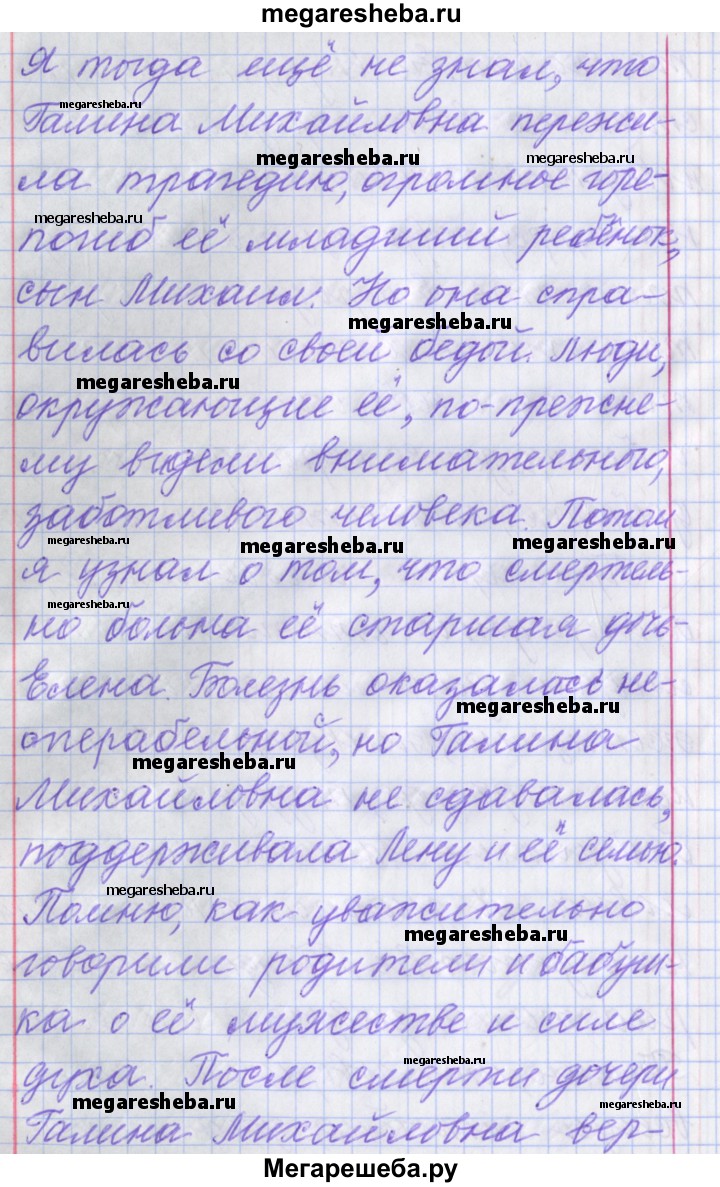 megaresheba.ru
Я тогда ещё не знал, что
megaresheba.ru
Галина Михайловна пережи-
megaresheba.ru
megaresheba.ru
ла трагедию, огромное горе-
megaresheba.ru
погиб её младший ребёнок,
сын Михаил. Но она спра-
megaresheba.ru
вилась со своей бедой. Люди,
megaresheba.ru
окружающие её, по-прежне-
му видели внимательного,
заботливого человека. Потом
megaresheba.ru
megaresheba.ru
megaresheba.ru
я узнал о том, что смертель-
megaresheba.ru
но больна её старшая дочь
Елена. Болезнь оказалась не-
megaresheba.ru
операбельной, но Галина
megaresheba.ru
Михайловна не сдавалась,
поддерживала Лену и её семью.
megaresheba.ru
Помню, как уважительно
megaresheba.ru
говорили родители и бабуш-
ка о её мужестве и силе
megaresheba.ru
духа. После смерти дочери
megaresheba.ru
megaresheba.ru
Галина Михайловна вер-
Мегарешеба.ру